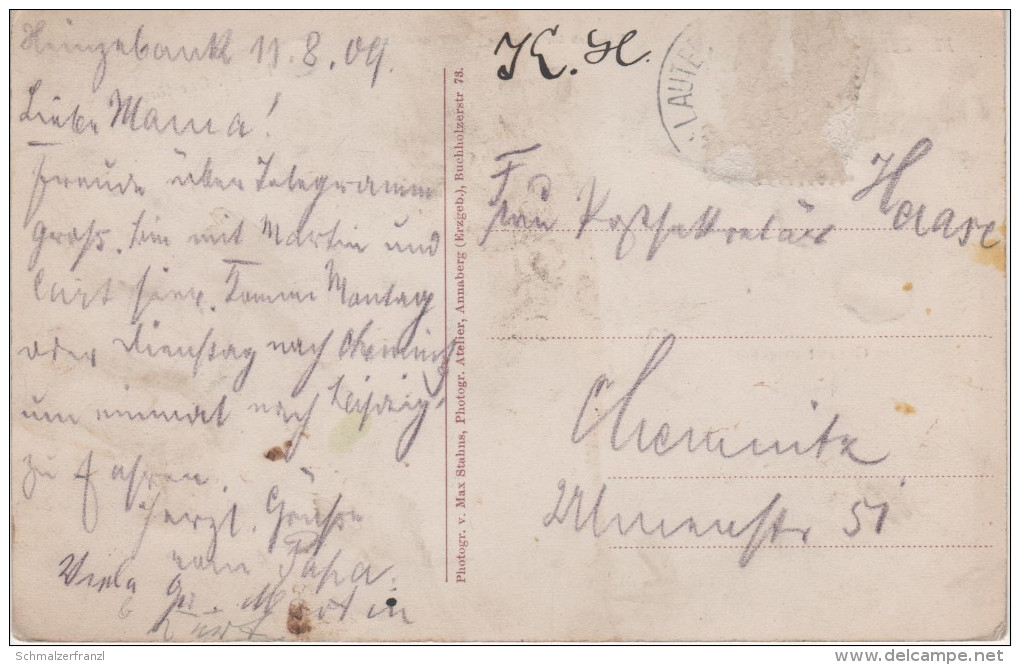 Heinzebank 11.8.09.
Liebe Mama!
Freude über Telegramm
groß. Bin mit Martin und
Curt hier. Komme Montag
oder Dienstag nach Chemnitz
um einmal nach Leipzig
zu fahren.
Herzl. Grüße
vom Papa.
Viele Gr. Martin
Kurt
Photogr. v. Max Stahns, Photogr. Atelier, Annaberg (Erzgeb.), Buchholzerstr 73.
K. H.
LAUTE
Frau Postsekretär Haase
Chemnitz
Ulmenstr 51
© Schmalzerfranzl
delcampe.net